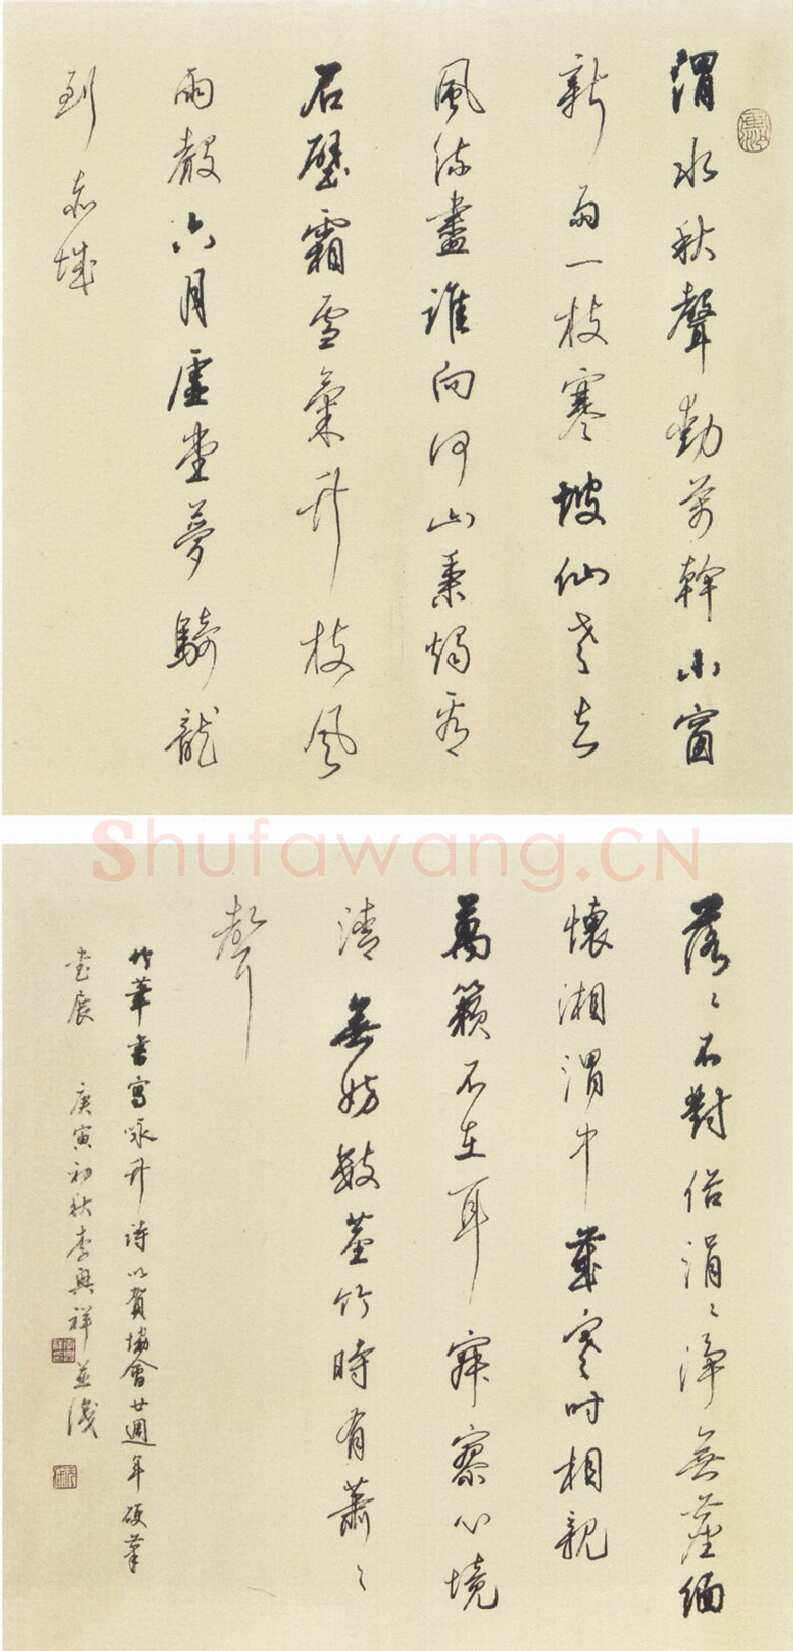 渭水秋聲動萬幹小窗
新雨一枝寒坡仙老去
風流盡誰向河山秉燭看
石壁霜雪氣竹枝風
雨聲六月虛堂夢騎龍
到赤城
Shufawang.CN
落〻不對俗涓〻淨無塵緬
懷湘渭中歲寒時相親
萬籟不在耳寂寥心境
清無妨數莖竹時有蕭〻
聲
竹筆書寫詠竹詩以賀協會廿週年硬筆
書展 庚寅初秋李興祥並識